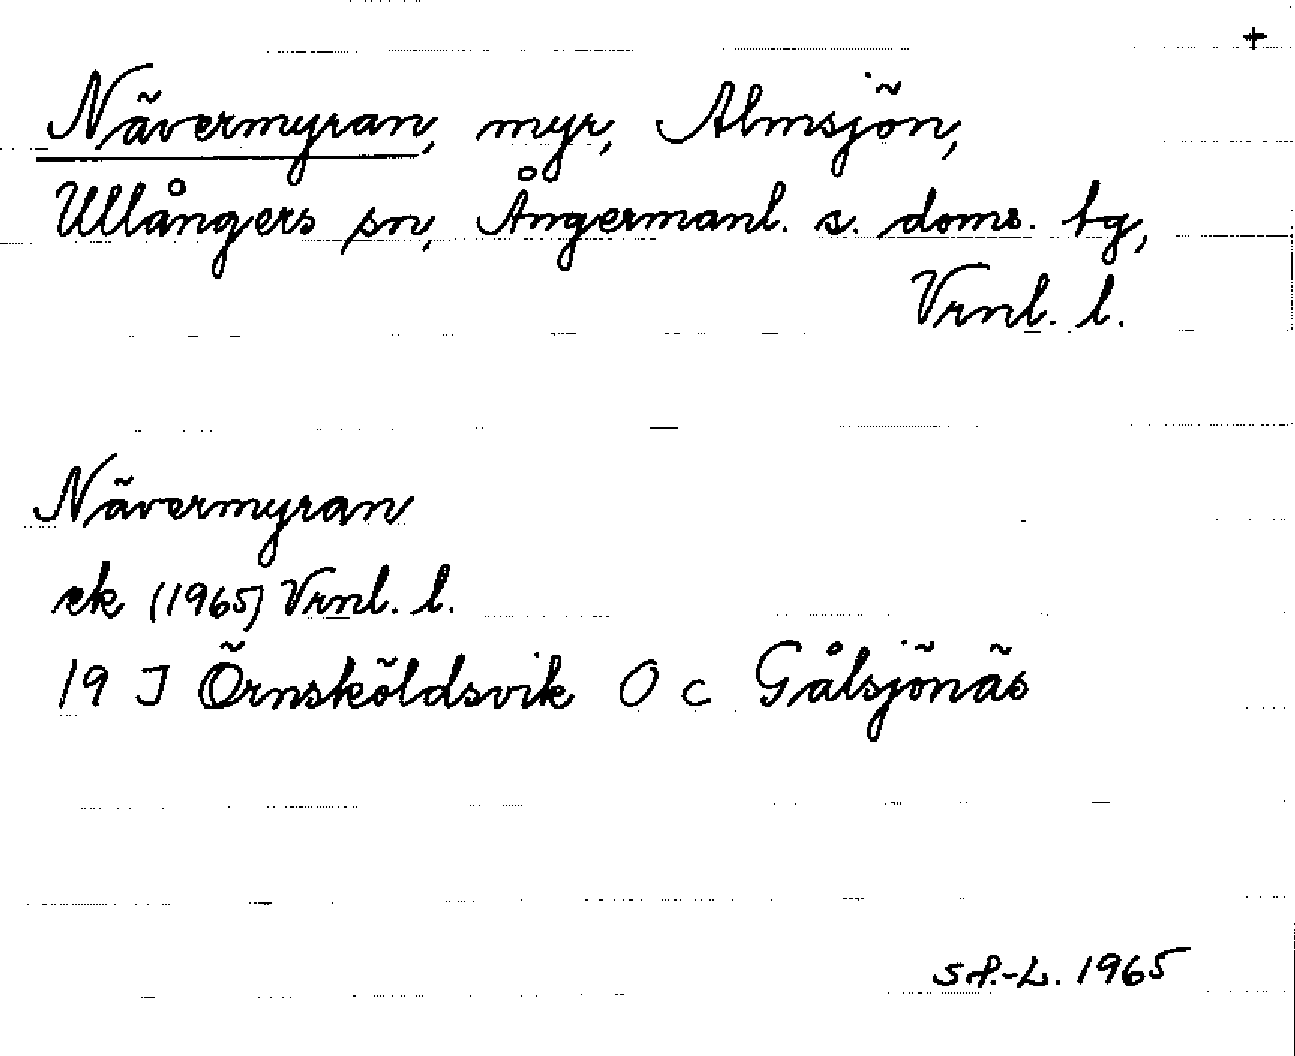 +
Nävermyran, myr, Almsjön,
Ullångers sn, Ångermanl. s. doms. tg,
Vrnl. l.
Nävermyran
ek (1965) Vrnl. l.
19 J Örnsköldsvik O c Gålsjönäs
SP.-L. 1965